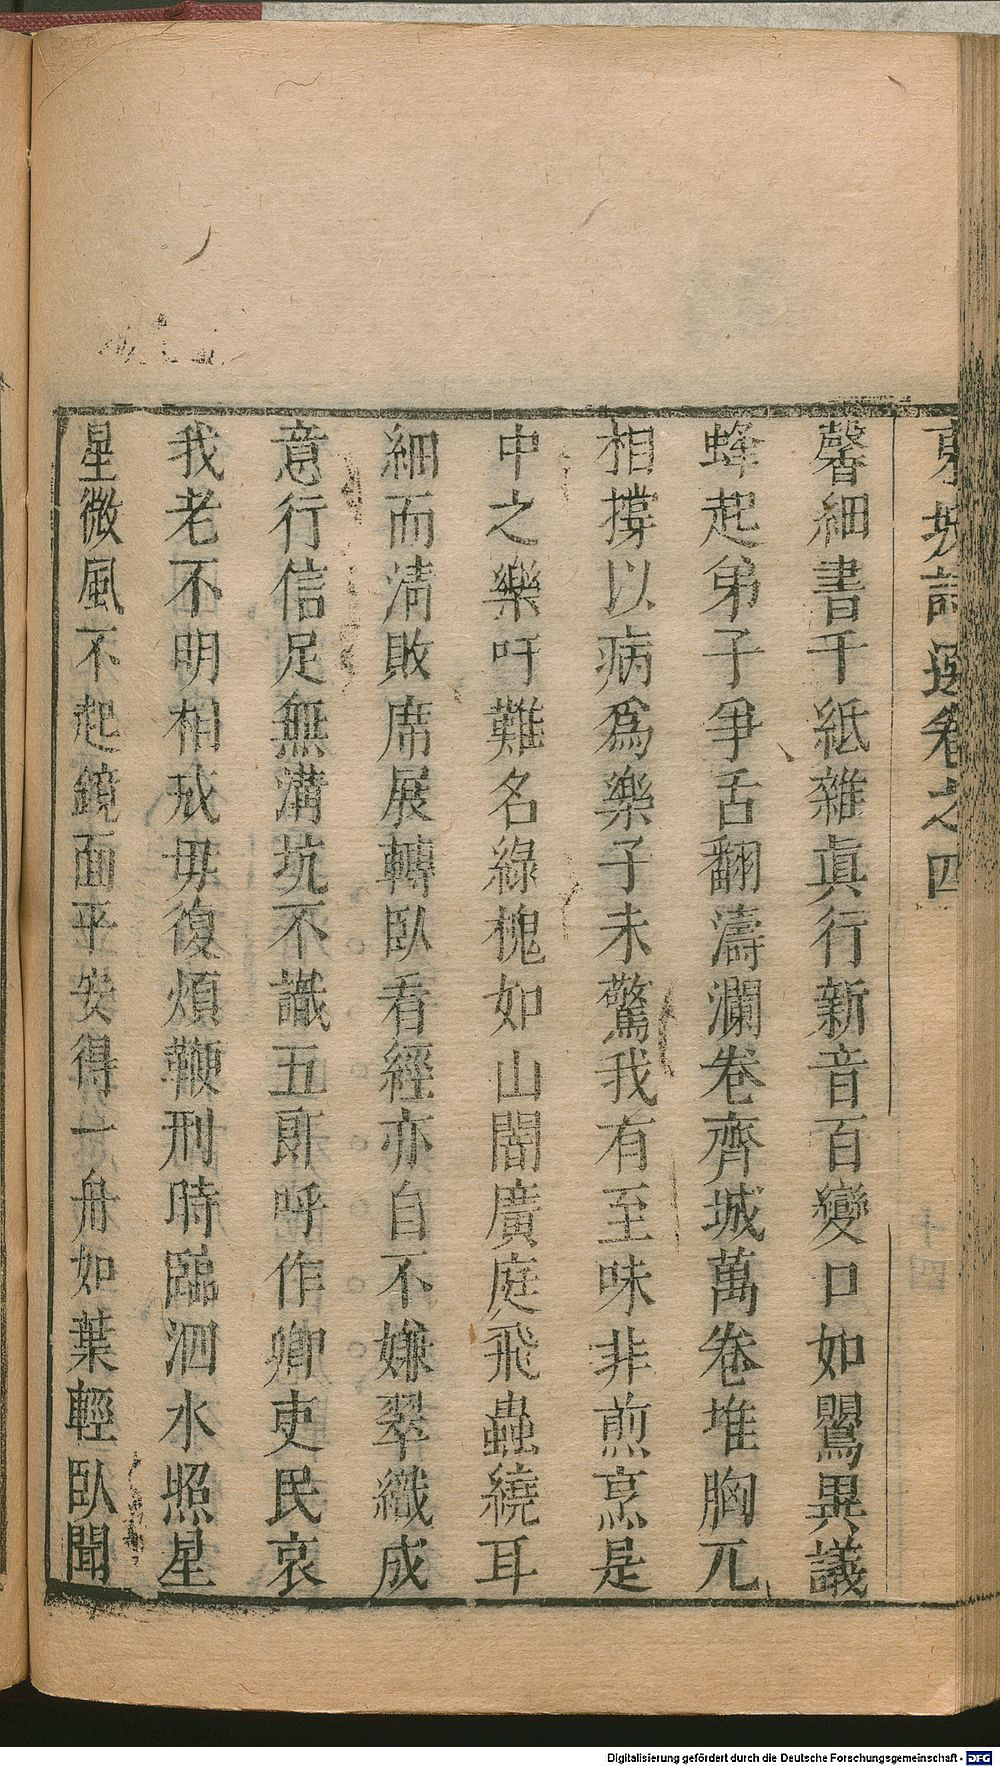 東坡詩選卷之四
馨細書千紙雜眞行新音百變口如鸎異議
蜂起弟子爭舌翻濤瀾卷齊城萬卷堆胸兀
相撐以病爲樂子未驚我有至味非煎烹是
中之樂吁難名綠槐如山闇廣庭飛蟲繞耳
細而淸敗席展轉臥看經亦自不嫌翠織成
意行信足無溝坑不識五郞呼作卿吏民哀
我老不明相戒毋復煩鞭刑時臨泗水照星
星微風不起鏡面平安得一舟如葉輕臥聞
十四
Digitalisierung gefördert durch die Deutsche Forschungsgemeinschaft - DFG